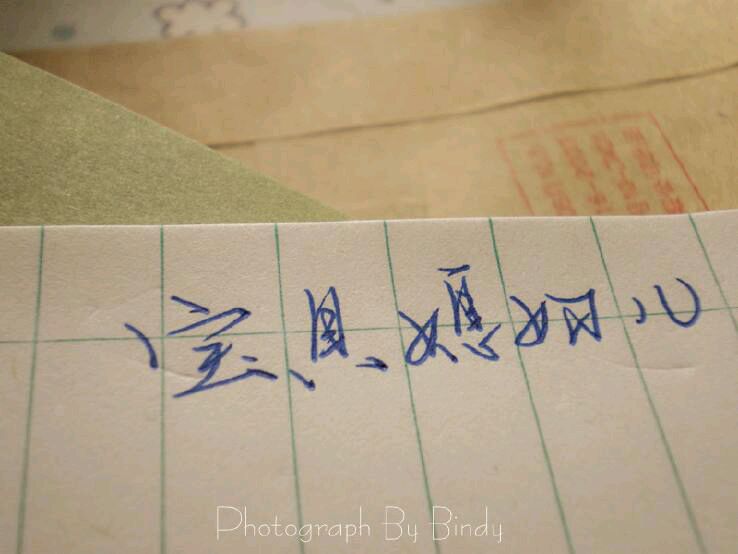 宝貝媳妇儿
Photograph By Bindy